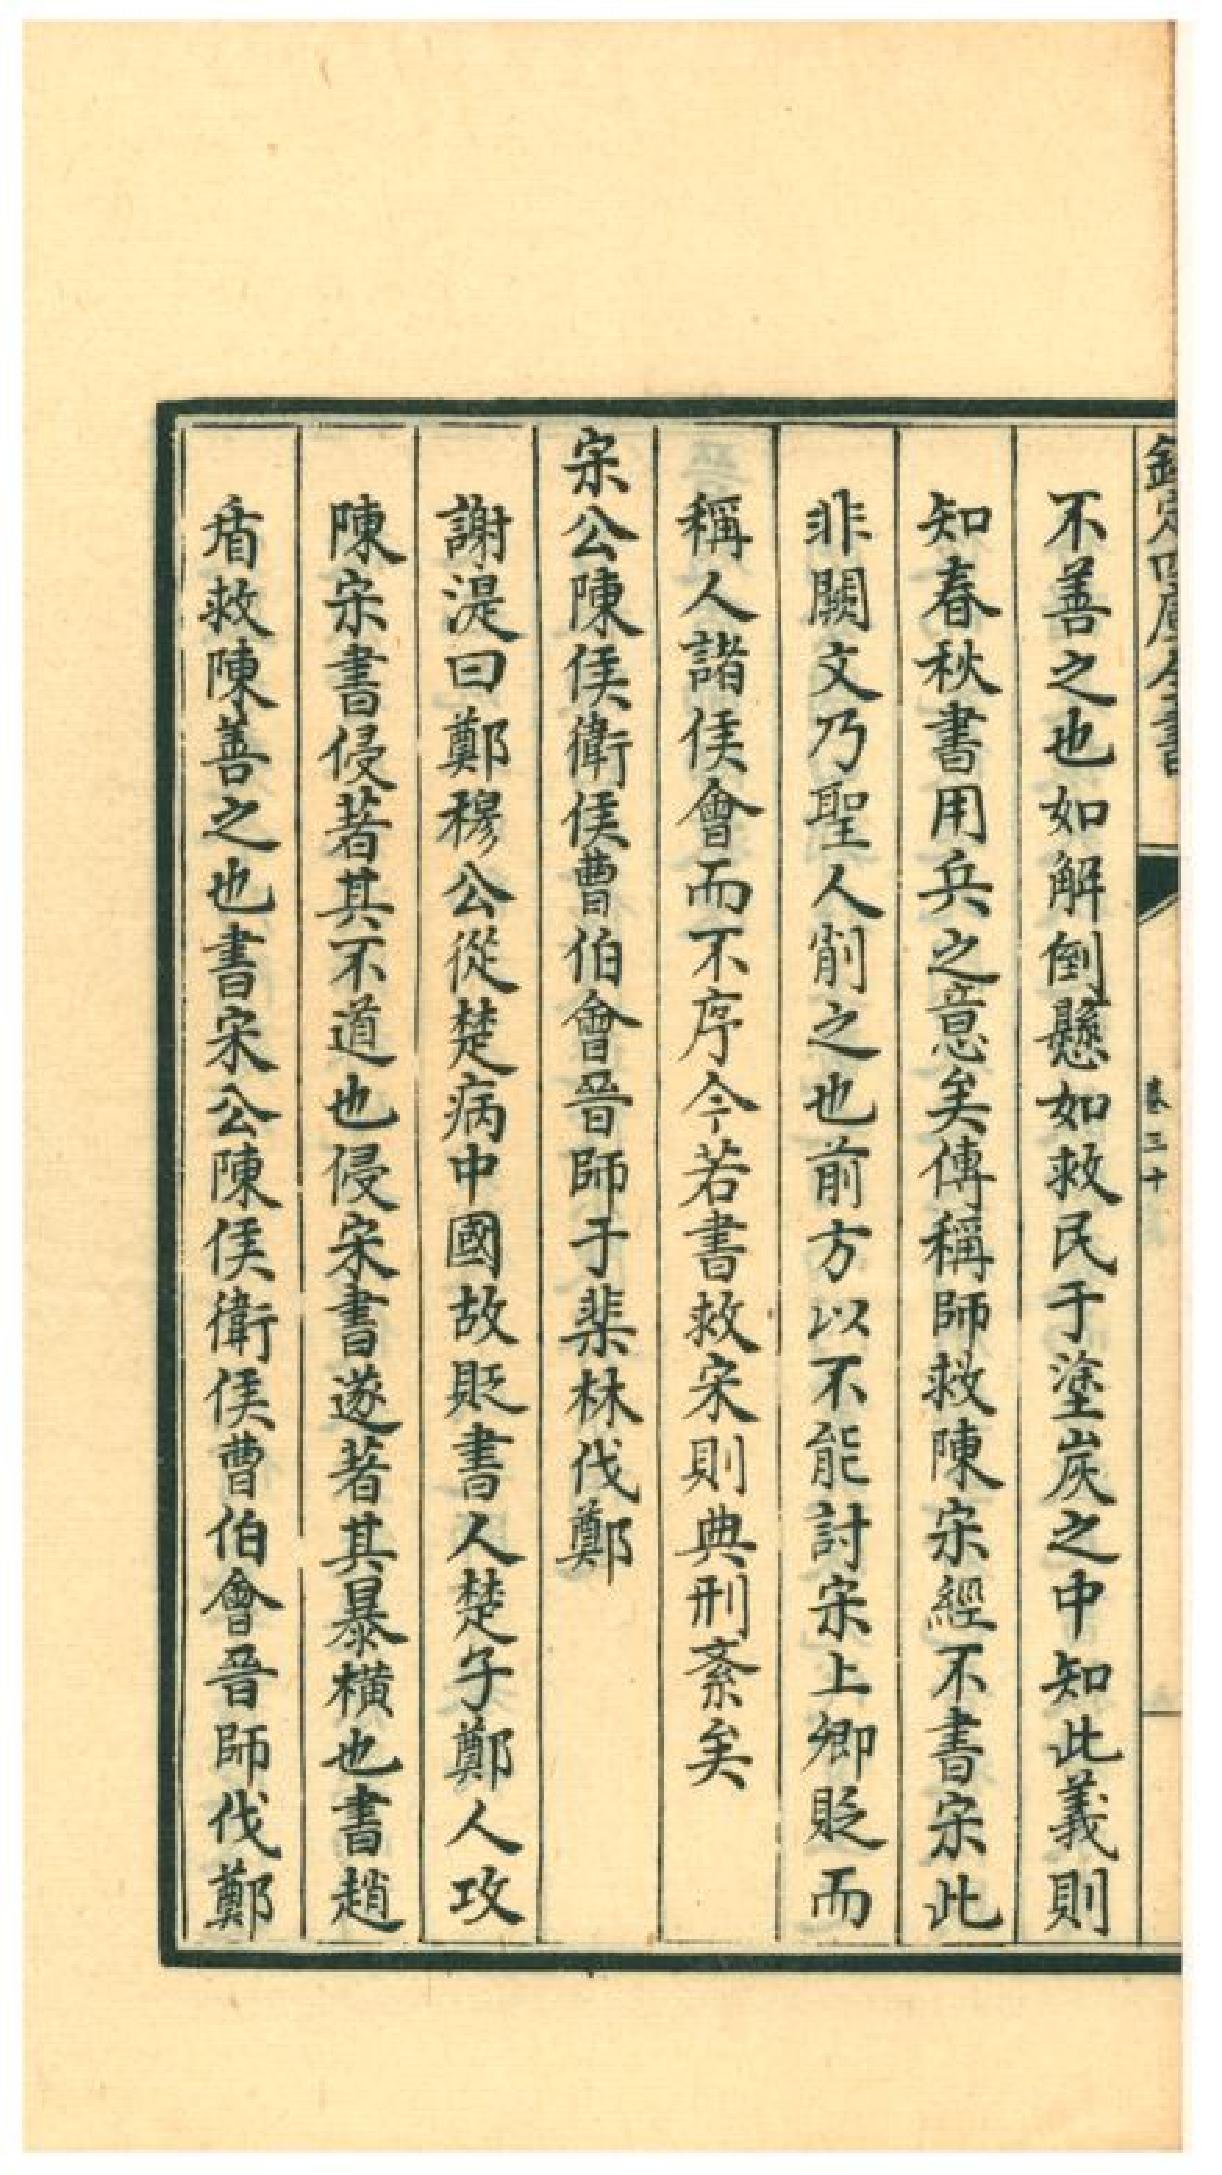 欽定四庫全書
卷三十
不善之也如解倒懸如救民于塗炭之中知此義則
知春秋書用兵之意矣傳稱師救陳宋經不書宋此
非闕文乃聖人削之也前方以不能討宋上卿貶而
稱人諸侯會而不序今若書救宋則典刑紊矣
宋公陳侯衛侯曹伯會晉師于棐林伐鄭
謝湜曰鄭穆公從楚病中國故貶書人楚子鄭人攻
陳宋書侵著其不道也侵宋書遂著其暴橫也書趙
盾救陳善之也書宋公陳侯衛侯曹伯會晉師伐鄭